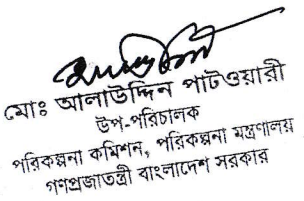 মোঃ আলাউদ্দিন পাটওয়ারী
উপ-পরিচালক
পরিকল্পনা কমিশন, পরিকল্পনা মন্ত্রণালয়
গণপ্রজাতন্ত্রী বাংলাদেশ সরকার